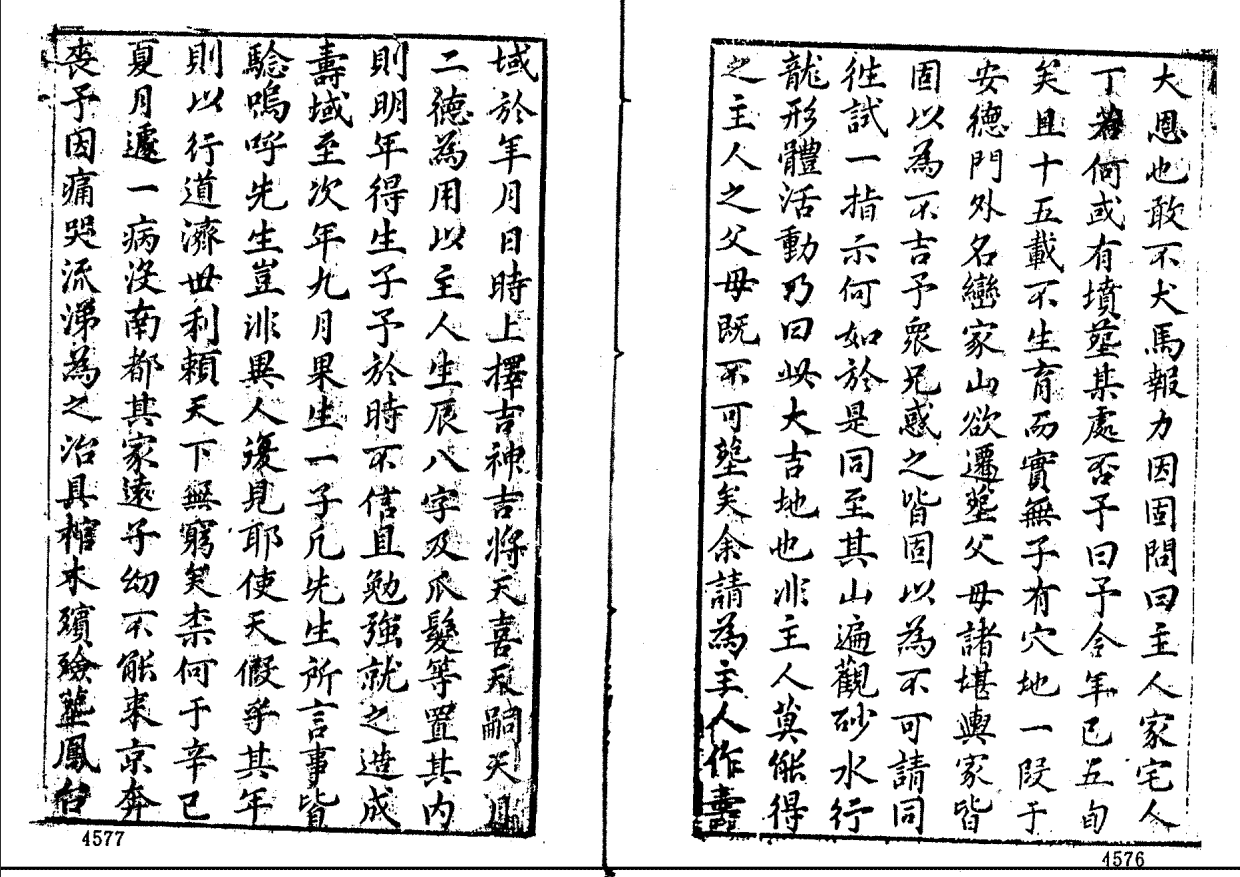 大恩也敢不犬馬報力因固問曰主人家宅人
丁若何或有墳塋某處否予曰予今年已五旬
矣且十五載不生育而實無子有穴地一段于
安德門外名巒家山欲遷塋父母諸堪輿家皆
固以為不吉予衆兄惑之皆固以為不可請同
徃試一指示何如於是同至其山遍觀砂水行
龍形體活動乃曰此大吉地也非主人莫能得
之主人之父母既不可塟矣余請為主人作壽
域於年月日時上擇吉神吉將天喜天嗣天月
二德為用以主人生辰八字及爪髮等置其内
則明年得生子予於時不信且勉強就之造成
壽域至次年九月果生一子凡先生所言事皆
驗嗚呼先生豈非異人復見耶使天假乎其年
則以行道濟世利賴天下無窮矣柰何于辛巳
夏月遽一病没南都其家遠子幼不能来京奔
喪予因痛哭流涕為之治具棺木殯殮塟鳳台
4577
4576